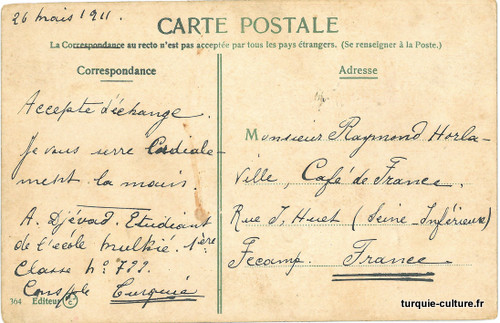 26 mars 1911.
CARTE POSTALE
La Correspondance au recto n'est pas acceptée par tous les pays étrangers. (Se renseigner à la Poste.)
Correspondance
Accepte d'échange.
Je vous serre Cordiale-
ment la main.
A. Djévad. Etudiant
de l'école mulkié. 1ère
Classe no 799
Consple Turquie
364 Editeur
Adresse
Monsieur Raymond Horla-
ville, Café de France.
Rue J. Huet (Seine-Inférieure)
Fecamp. France
turquie-culture.fr